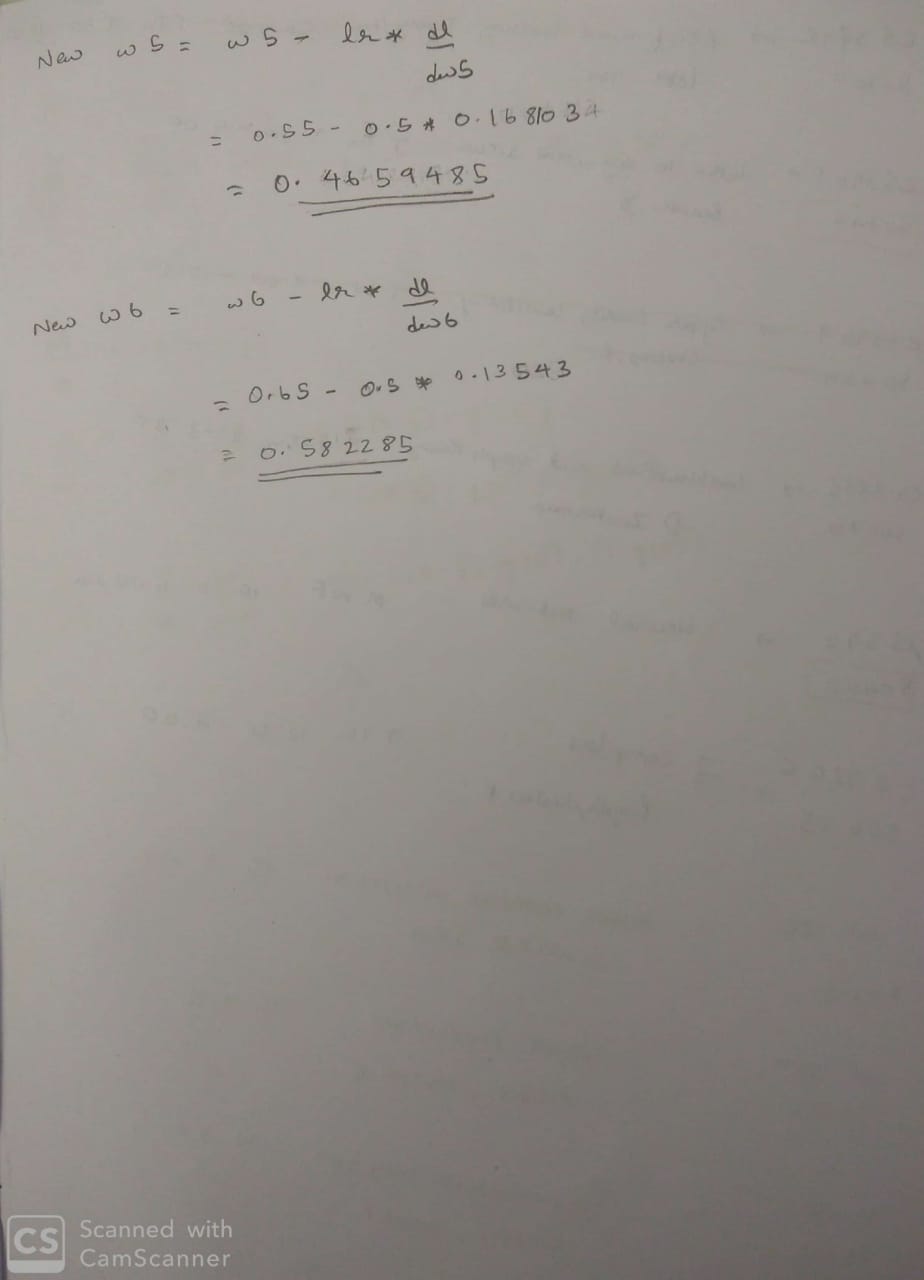 New w5 = w5 - lr * dl
dw5
= 0.55 - 0.5 * 0.1681034
= 0.4659485
New w6 = w6 - lr * dl
dw6
= 0.65 - 0.5 * 0.13543
= 0.582285
CS Scanned with
CamScanner